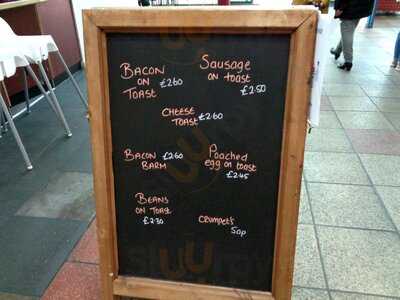 BACON
ON £2.60
TOAST
Sausage
on toast
£2.50
CHEESE
TOAST £2.60
BACON £2.60
BARM
Poached
egg on toast
£2.45
BEANS
ON TOAST
£2.30
CRUMPET'S
50p